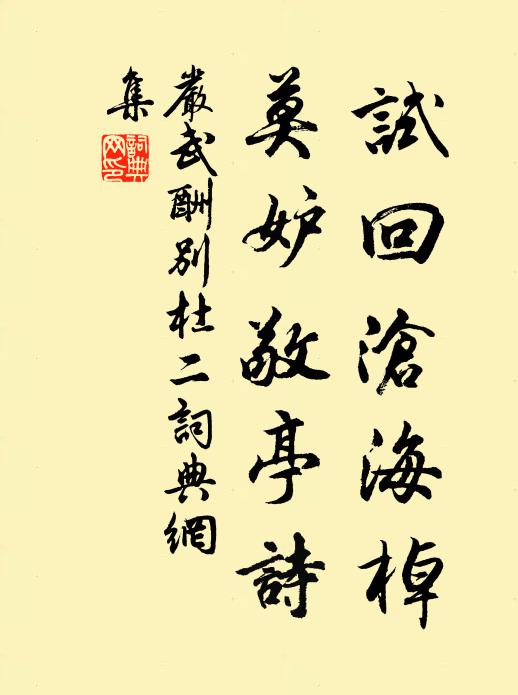 試回滄海棹
莫妒敬亭詩
嚴武酬別杜二詞典網
集
詞典
网印